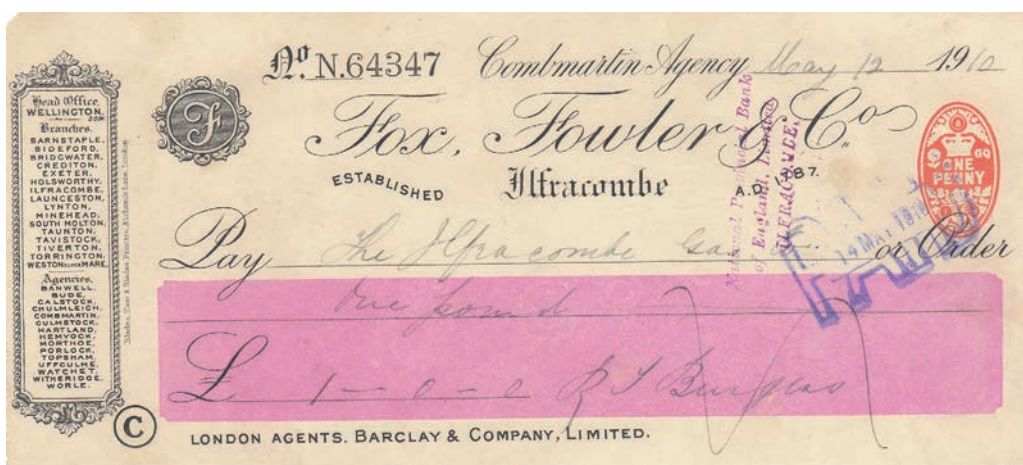 Head Office,
WELLINGTON,
SOM
Branches.
BARNSTAPLE,
BIDEFORD,
BRIDGWATER,
CREDITON,
EXETER,
HOLSWORTHY,
ILFRACOMBE,
LAUNCESTON,
LYNTON,
MINEHEAD,
SOUTH MOLTON,
TAUNTON,
TAVISTOCK,
TIVERTON,
TORRINGTON,
WESTON SUPER MARE.
Agencies.
BANWELL,
BUDE,
CALSTOCK,
CHULMLEIGH,
COMBMARTIN,
CULMSTOCK,
HARTLAND,
HEMYOCK,
MORTHOE,
PORLOCK,
TOPSHAM,
UFFCULME,
WATCHET,
WITHERIDGE,
WORLE.
No. N.64347 Combmartin Agency May 12 1910
F
Fox, Fowler & Co.
ESTABLISHED Ilfracombe A.D. 1787.
ONE
PENNY
National Provincial Bank
of England, Limited
ILFRACOMBE.
14 MAY 1910
Pay The Ilfracombe or Order
One pound
£ 1 - 0 - 0 Burgess
C
LONDON AGENTS. BARCLAY & COMPANY, LIMITED.